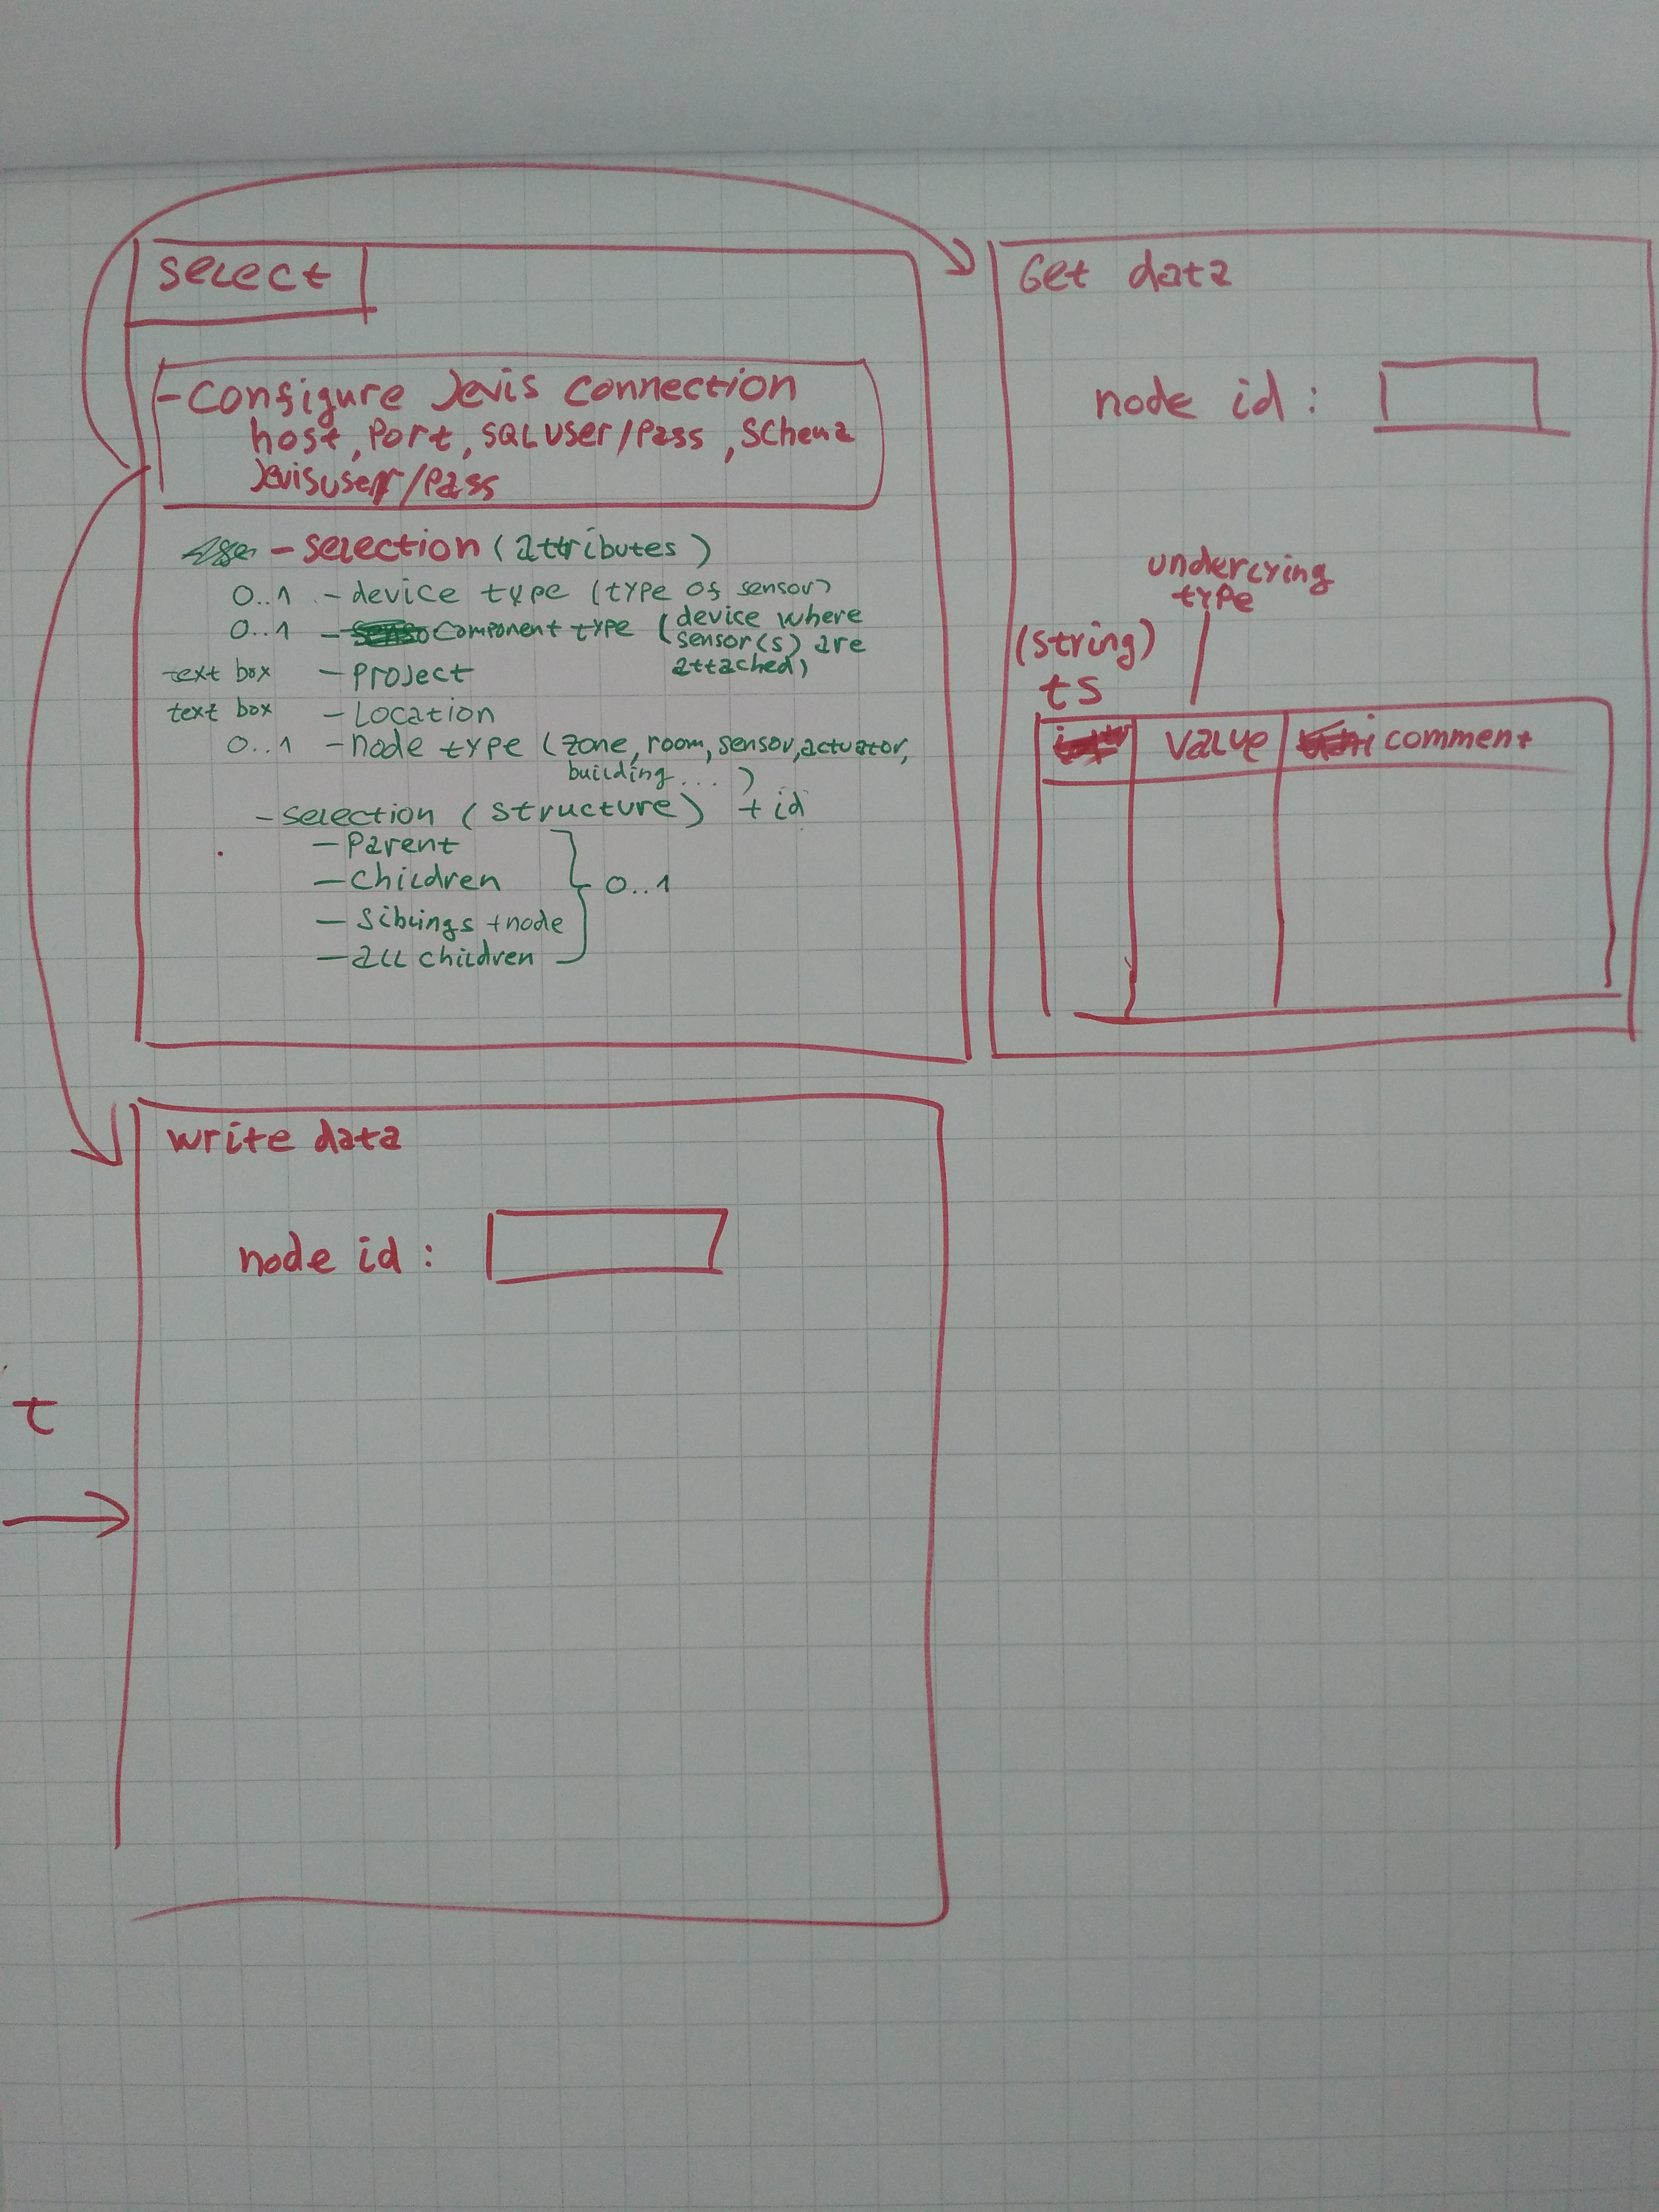 select
- configure Jevis connection
host, Port, SQL user/Pass, schema
Jevisuser/Pass
- selection (attributes)
0..1 - device type (type of sensor)
0..1 - component type (device where
sensor(s) are
attached)
text box - Project
text box - Location
0..1 - node type (zone, room, sensor, actuator,
building ... )
- selection (structure) + id
- Parent
- children
- siblings + node
- all children
0..1
Get data
node id :
underlying
type
(string)
ts
value comment
write data
node id :
t